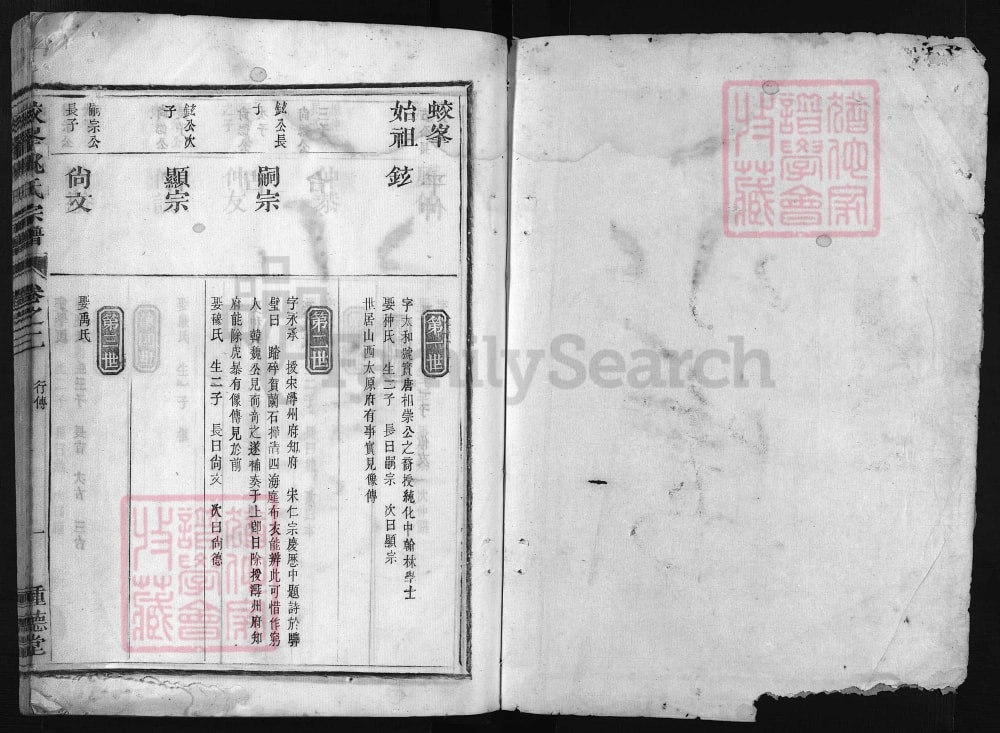 蛟峯
始祖 鉉
鉉公長子 嗣宗
鉉公次子 顯宗
嗣宗公長子 尙文
第一世
字太和號賓唐相崇公之裔授純化中翰林學士
娶仲氏 生二子 長曰嗣宗 次曰顯宗
世居山西太原府有事實見像傳
第二世
字永承 授宋潯州府知府 宋仁宗慶歷中題詩於驛
璧曰 踏碎賀蘭石掃淸四海塵布衣能辦此可惜作窮
人 韓魏公見而奇之遂補奏于上卽日除授潯州府知
府能除虎暴有像傳見於前
娶穆氏 生二子 長曰尙文 次曰尙德
第三世
娶禹氏
蛟峯姚氏宗譜
卷之二
行傳
一
種德堂
FamilySearch